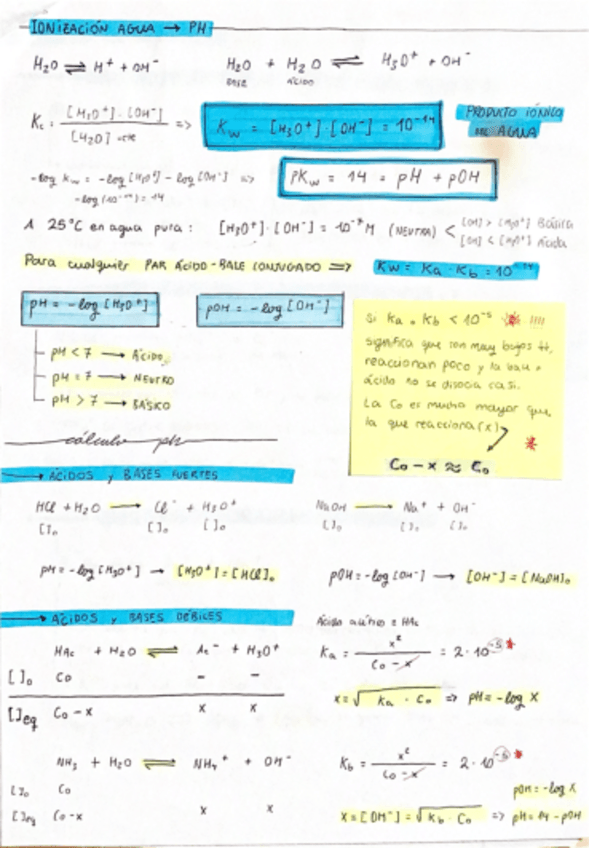 IONIZACIÓN AGUA → PH
H₂O ⇌ H⁺ + OH⁻
H₂O + H₂O ⇌ H₃O⁺ + OH⁻
BASE ÁCIDO
Kc = [H₃O⁺]·[OH⁻] / [H₂O] =>
Kw = [H₃O⁺]·[OH⁻] = 10⁻¹⁴
PRODUCTO IÓNICO
DEL AGUA
-log Kw = -log[H₃O⁺] - log[OH⁻] =>
-log(10⁻¹⁴) = 14
pKw = 14 = pH + pOH
A 25°C en agua pura: [H₃O⁺]·[OH⁻] = 10⁻⁷ M (NEUTRA) < [OH] > [H₃O⁺] Básica
[OH] < [H₃O⁺] Ácida
Para cualquier PAR ÁCIDO-BASE CONJUGADO => Kw = Ka · Kb = 10⁻¹⁴
pH = -log[H₃O⁺]
pOH = -log[OH⁻]
pH < 7 → ÁCIDO
pH = 7 → NEUTRO
pH > 7 → BÁSICO
Si Ka o Kb < 10⁻⁵ !!!!
significa que son muy bajos
reaccionan poco y la base o
ácido no se disocia casi.
La Co es mucho mayor que
la que reacciona (x)
Co - x ≈ Co
cálculo pH
→ ÁCIDOS y BASES FUERTES
HCl + H₂O → Cl⁻ + H₃O⁺
[ ]₀ [ ]₀ [ ]₀
NaOH → Na⁺ + OH⁻
[ ]₀ [ ]₀ [ ]₀
pH = -log[H₃O⁺] → [H₃O⁺] = [HCl]₀
pOH = -log[OH⁻] → [OH⁻] = [NaOH]₀
→ ÁCIDOS y BASES DÉBILES
Ácido acético = HAc
HAc + H₂O ⇌ Ac⁻ + H₃O⁺
[ ]₀ Co - -
[ ]eq Co - x x x
Ka = x² / Co - x = 2·10⁻⁵ *
x = √Ka · Co => pH = -log x
NH₃ + H₂O ⇌ NH₄⁺ + OH⁻
[ ]₀ Co
[ ]eq Co - x x x
Kb = x² / Co - x = 2·10⁻⁵ *
pOH = -log x
x = [OH⁻] = √Kb · Co => pH = 14 - pOH